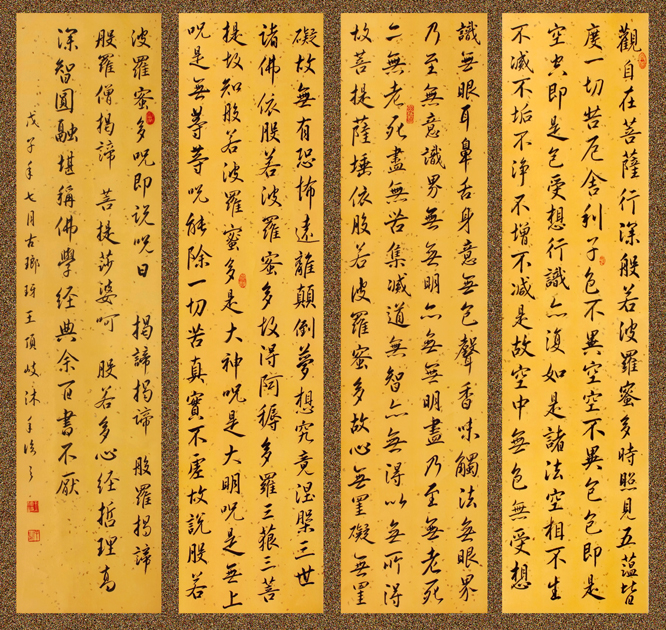 觀自在菩薩行深般若波羅蜜多時照見五蘊皆
度一切苦厄舍利子色不異空空不異色色即是
空空即是色受想行識亦復如是諸法空相不生
不滅不垢不淨不增不減是故空中無色無受想
識無眼耳鼻舌身意無色聲香味觸法無眼界
乃至無意識界無無明亦無無明盡乃至無老死
亦無老死盡無苦集滅道無智亦無得以無所得
故菩提薩埵依般若波羅蜜多故心無罣礙無罣
礙故無有恐怖遠離顛倒夢想究竟涅槃三世
諸佛依般若波羅蜜多故得阿耨多羅三藐三菩
提故知般若波羅蜜多是大神咒是大明咒是無上
咒是無等等咒能除一切苦真實不虛故說般若
波羅蜜多咒即说咒曰 揭諦揭諦 般羅揭諦
般羅僧揭諦 菩提莎婆呵 般若多心经哲理高
深智圓融堪稱佛學经典余百書不厭
戊子年七月古瑯玡王頂岐沐手